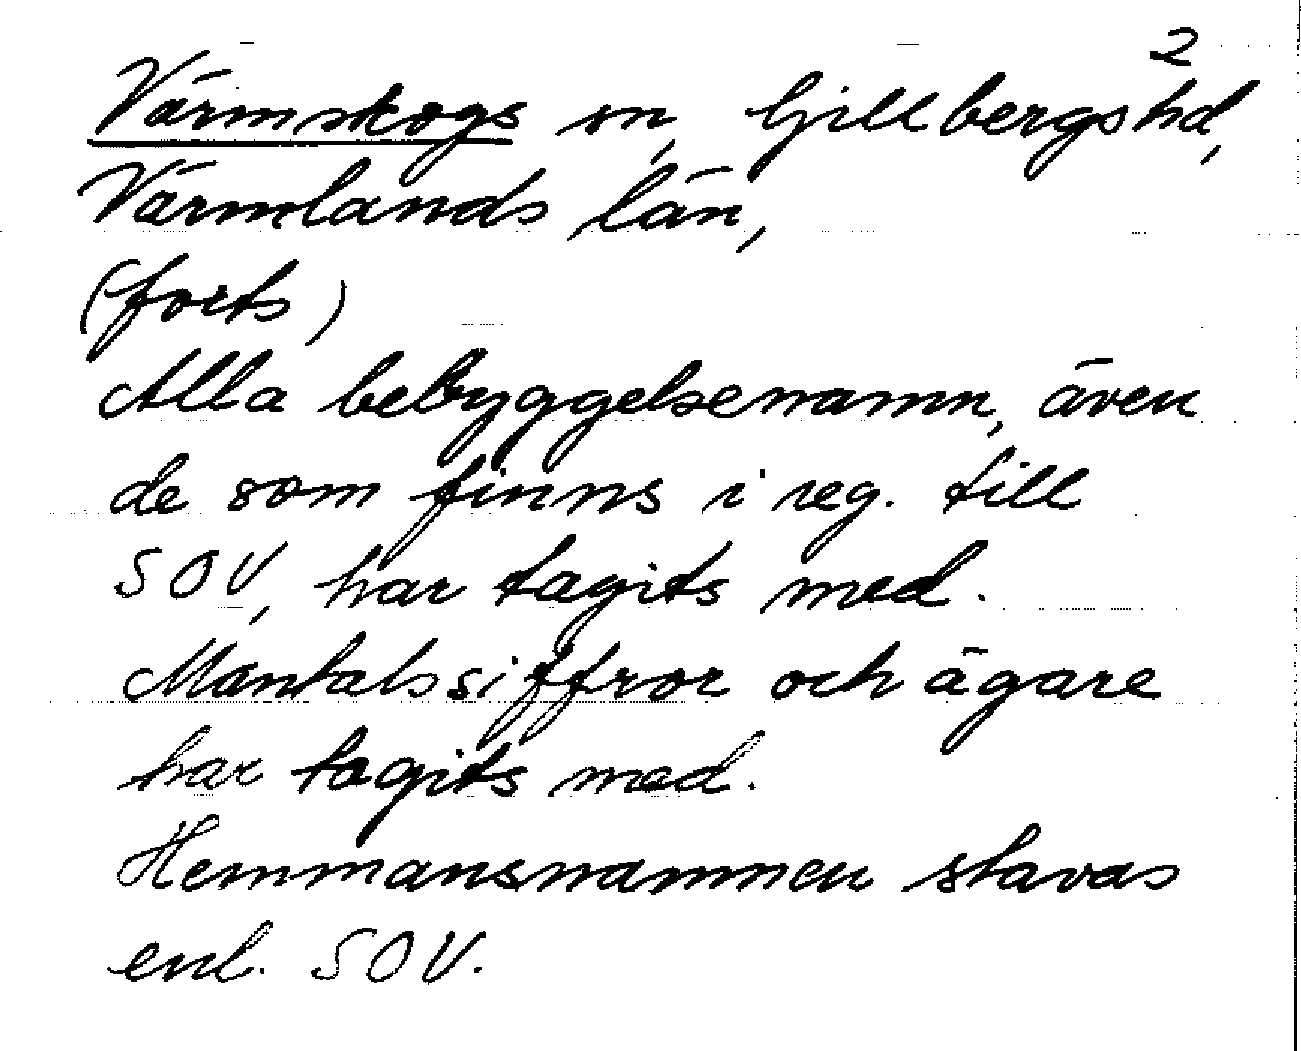 2
Värmskogs sn, Gillbergs hd,
Värmlands län,
(forts)
Alla bebyggelsenamn, även
de som finns i reg. till
SOV, har tagits med.
Mantalssiffror och ägare
har tagits med.
Hemmansnamnen stavas
enl. SOV.